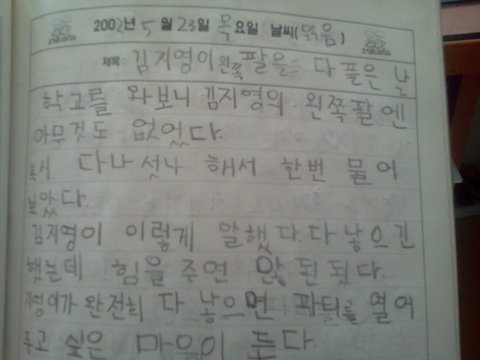 2002년 5월 23일 목요일 날씨(맑음)
제목: 김지영이 왼쪽 팔을 다 풀은 날
학교를 와보니 김지영의 왼쪽팔엔
아무것도 없었다.
혹시 다나섯나 해서 한번 물어
보았다.
김지영이 이렇게 말했다. 다 낳으긴
했는데 힘을 주면 않된되다.
지영이가 완전희 다 낳으면 파티를 열어
주고 싶은 마음이 든다.